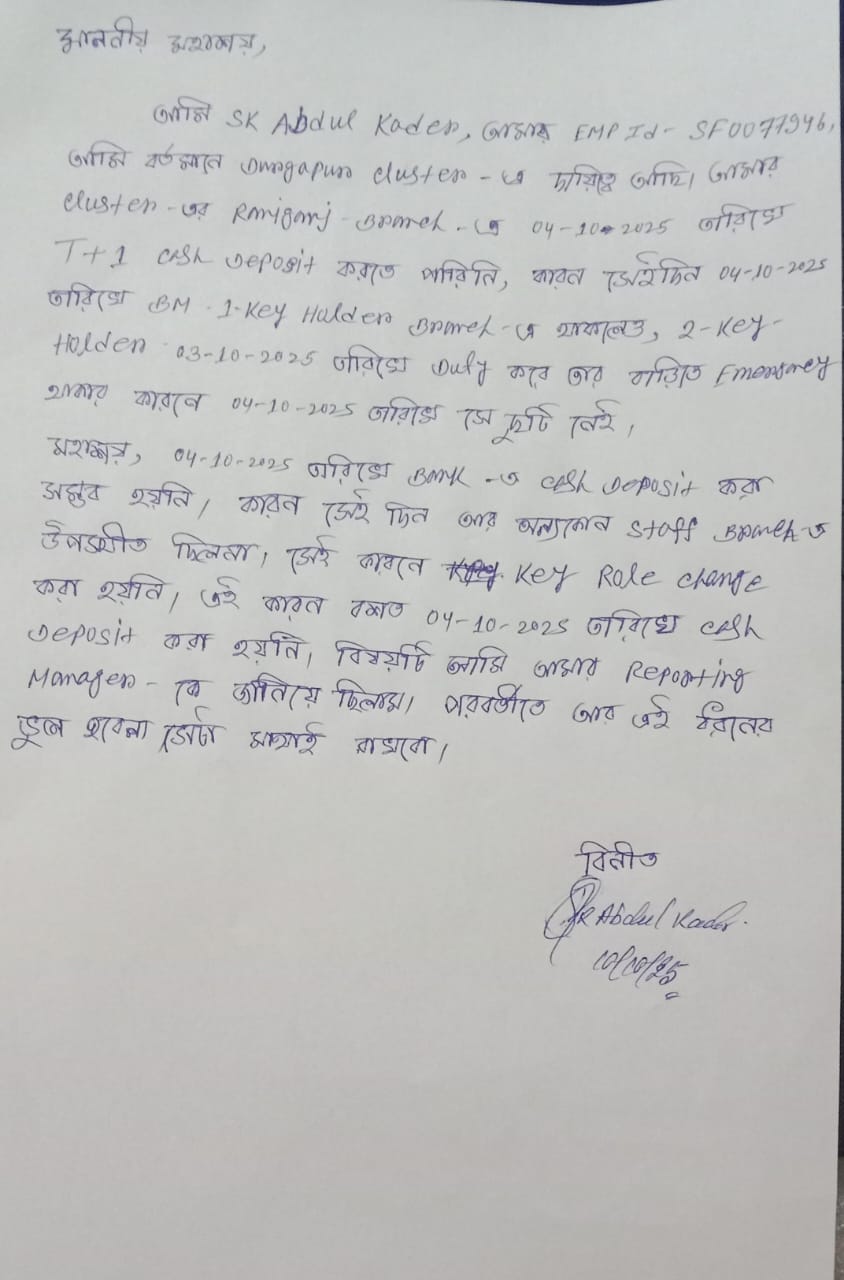 মাননীয় মহাশয়,
আমি SK Abdul Kader, আমার EMP Id - SF0077946,
আমি বর্তমানে Durgapur Cluster - এ দায়িত্বে আছি। আমার
Cluster - এর Raniganj - Branch - এ 04-10-2025 তারিখে
T+1 Cash Deposit করতে পারিনি, কারন সেইদিন 04-10-2025
তারিখে BM - 1-Key Holder Branch - এ থাকলেও, 2-Key-
Holder 03-10-2025 তারিখে Duty করে তার বাড়িতে Emergency
থাকার কারনে 04-10-2025 তারিখে সে ছুটি নেই,
মহাশয়, 04-10-2025 তারিখে Bank - এ Cash Deposit করা
সম্ভব হয়নি, কারন সেই দিন আর অন্যকোন Staff Branch-এ
উপস্থীত ছিলনা, সেই কারনে Key Role Change
করা হয়নি, এই কারন বশত 04-10-2025 তারিখে Cash
Deposit করা হয়নি, বিষয়টি আমি আমার Reporting
Manager - কে জানিয়ে ছিলাম। পরবর্তীতে আর এই ধরনের
ভুল হবেনা সেটা মাথাই রাখবো।
বিনীত
SK Abdul Kader.
10/10/25